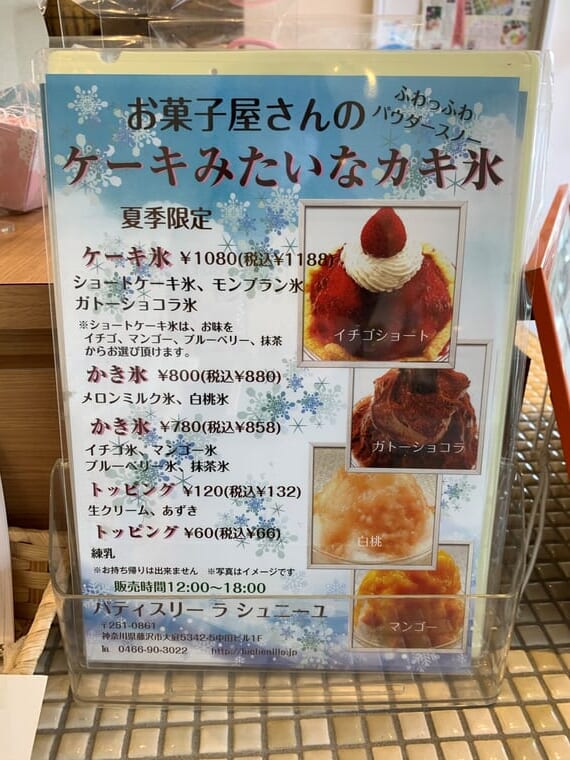 お菓子屋さんの
ふわっふわ
パウダースノー
ケーキみたいなカキ氷
夏季限定
ケーキ氷 ¥1080(税込¥1188)
ショートケーキ氷、モンブラン氷
ガトーショコラ氷
※ショートケーキ氷は、お味を
イチゴ、マンゴー、ブルーベリー、抹茶
からお選び頂けます。
イチゴショート
かき氷 ¥800(税込¥880)
メロンミルク氷、白桃氷
ガトーショコラ
かき氷 ¥780(税込¥858)
イチゴ氷、マンゴー氷
ブルーベリー氷、抹茶氷
トッピング ¥120(税込¥132)
生クリーム、あずき
白桃
トッピング ¥60(税込¥66)
練乳
※お持ち帰りは出来ません ※写真はイメージです
販売時間12:00~18:00
マンゴー
パティスリー ラ シュニーユ
〒251-0861
神奈川県藤沢市大庭5342-5中田ビル1F
℡ 0466-90-3022